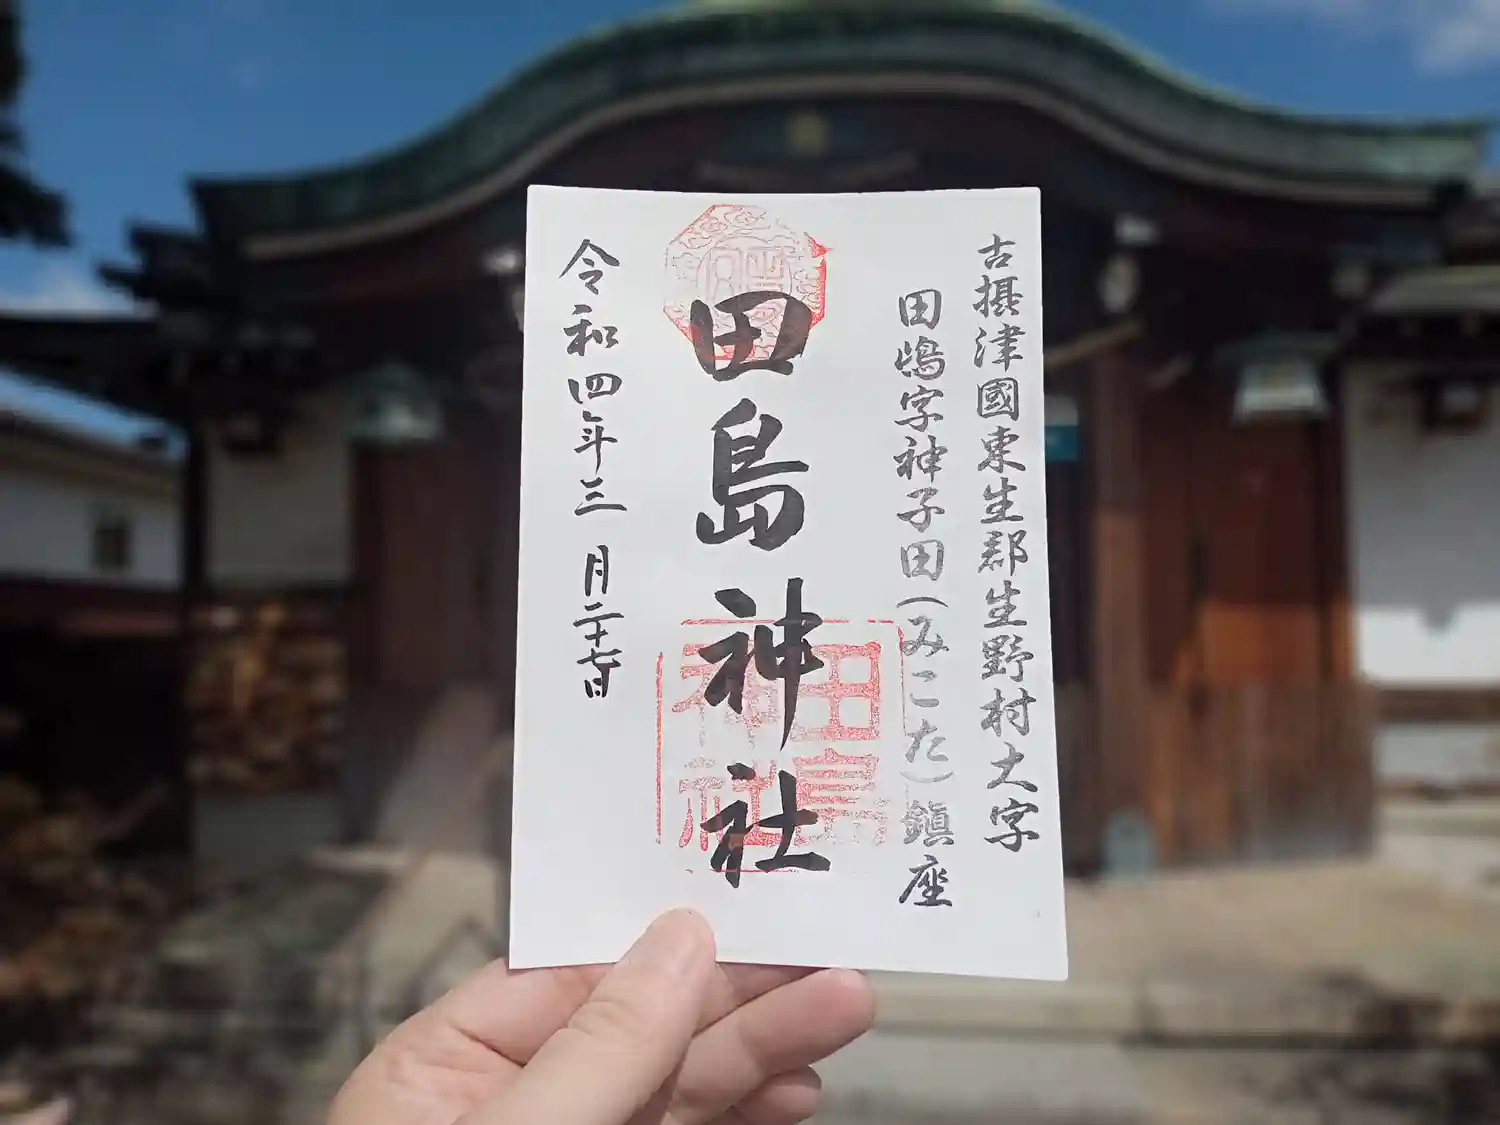 古摂津國東生郡生野村大字
田嶋字神子田(みこた)鎮座
田島神社
田島
神社
令和四年三月二十七日